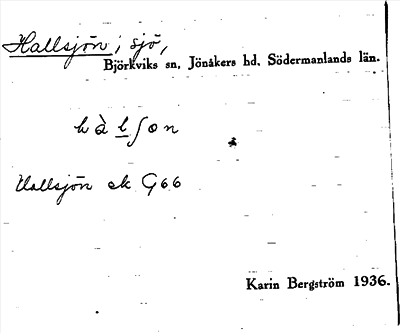 Hallsjön, sjö,
Björkviks sn, Jönåkers hd. Södermanlands län.
hà lʃon
Hallsjön ek G66
Karin Bergström 1936.